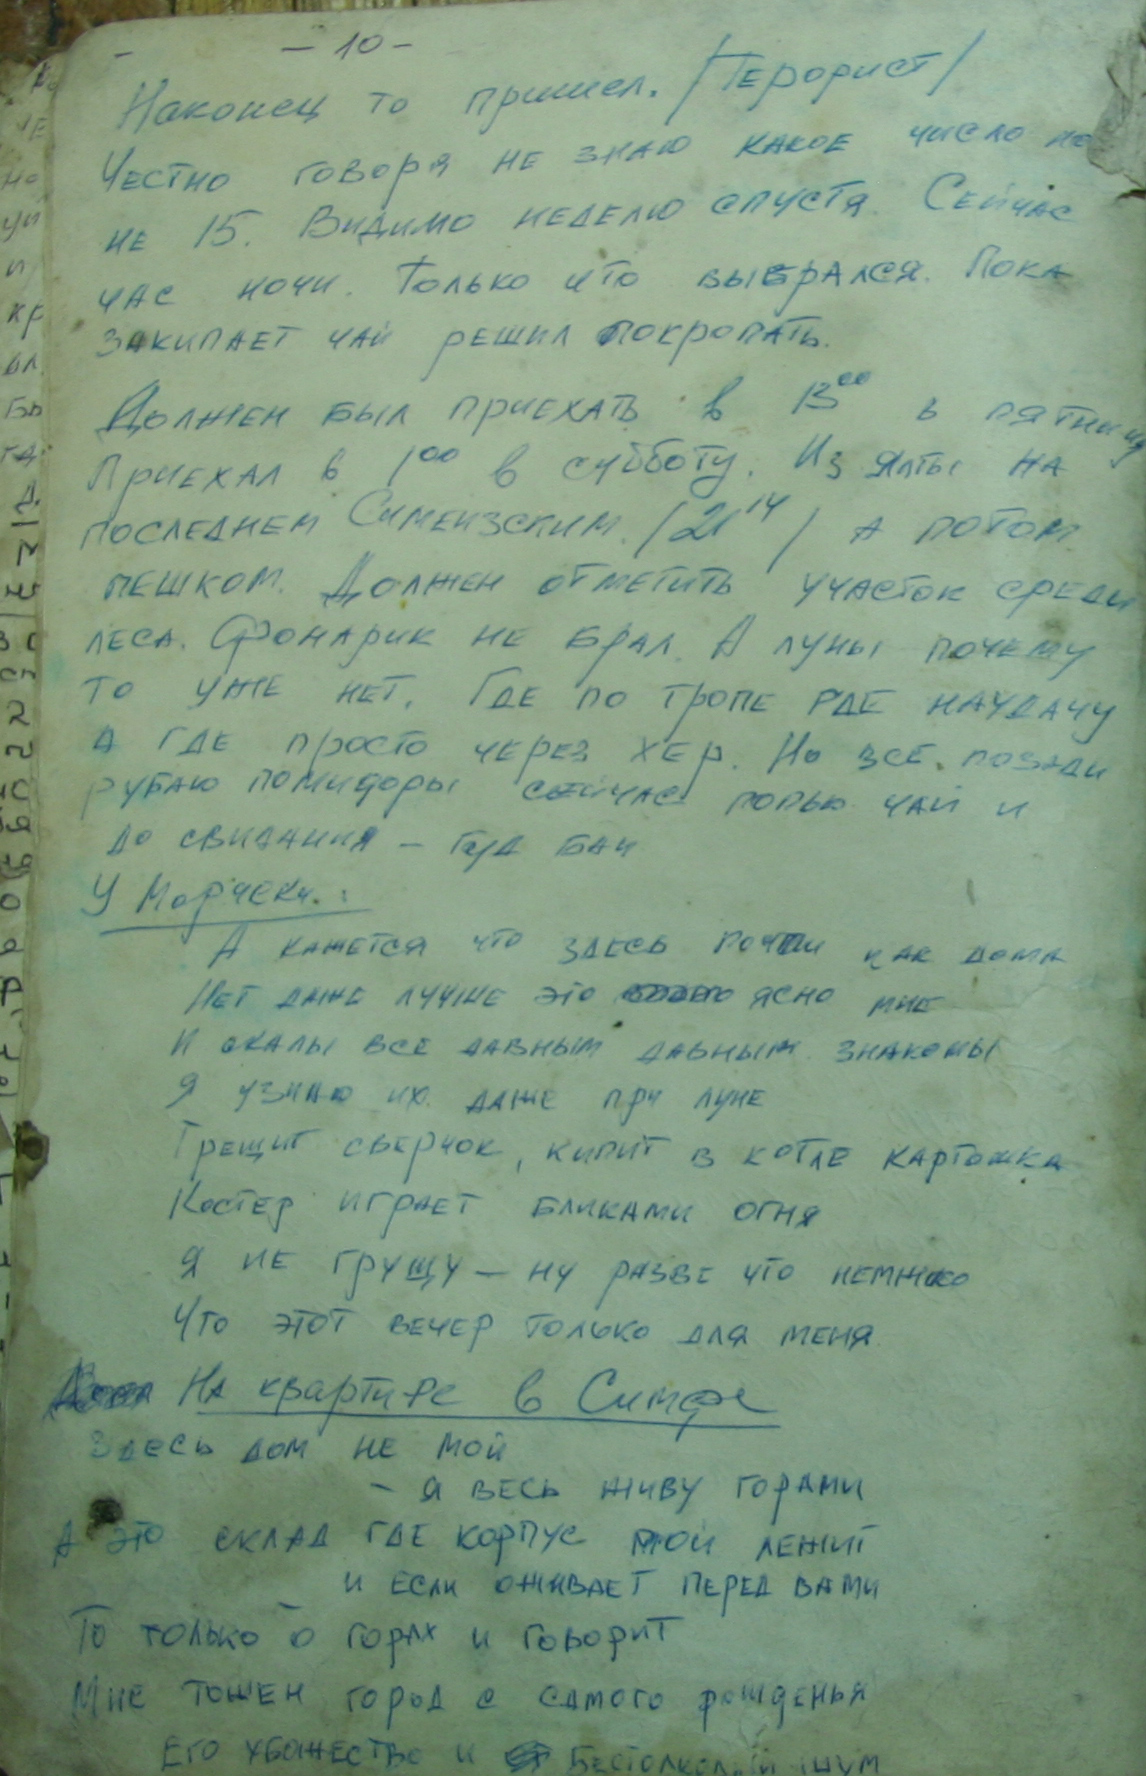 - 10 -
Наконец то пришел. /Терорист/
Честно говоря не знаю какое число но
не 15. Видимо неделю спустя. Сейчас
час ночи. Только что выбрался. Пока
закипает чай решил покропать.
Должен был приехать в 13⁰⁰ в пятницу
Приехал в 1⁰⁰ в субботу. Из Ялты на
последнем Симеизским. /21¹⁴/ а потом
пешком. Должен отметить участок среди
леса. Фонарик не брал. А луны почему
то уже нет. Где по тропе где наудачу
а где просто через хер. Но все позади
рубаю помидоры сейчас попью чай и
до свидания - гуд бай
У Морчеки. :
А кажется что здесь почти как дома
Нет даже лучше это ясно мне
И скалы все давным давным знакомы
Я узнаю их даже при луне
Трещит сверчок, кипит в котле картошка
Костер играет бликами огня
Я не грущу - ну разве что немножко
Что этот вечер только для меня
На квартире в Симфе
Здесь дом не мой
- я весь живу горами
А это склад где корпус мой лежит
и если оживает перед вами
То только о горах и говорит
Мне тошен город с самого рожденья
Его убожество и бестолковый шум